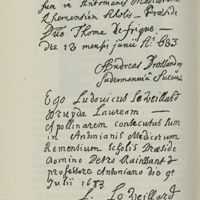 sum in Antonianis Medicorum
Rhemensium Scholis — Praeside
Duo Thoma de
die 12 mensis junii 1683
Andreas
Sudermannia Suecus
Ego Ludovicus Le Veillard
Lauream
Apollinarem consecutus sum
in Antonianis Medicorum
Remensium Scholis Praeside
Domino Petro Rainssant
professore Antoniano die 9a
Julii 1683
L. Le Veillard